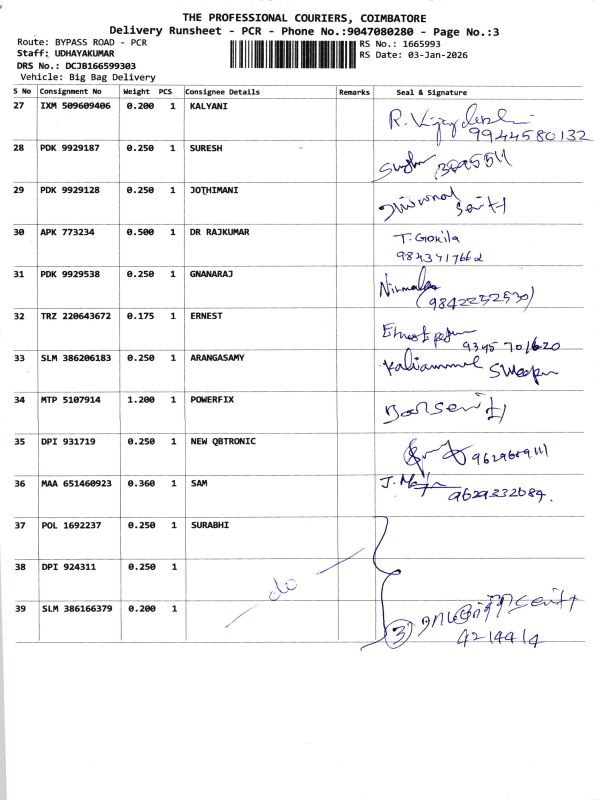 THE PROFESSIONAL COURIERS, COIMBATORE
Delivery Runsheet - PCR - Phone No.:9047080280 - Page No.:3
Route: BYPASS ROAD - PCR
Staff: UDHAYAKUMAR
DRS No.: DCJB166599303
Vehicle: Big Bag Delivery
RS No.: 1665993
RS Date: 03-Jan-2026
S No Consignment No Weight PCS Consignee Details Remarks Seal & Signature
27 IXM 509609406 0.200 1 KALYANI
9944580132
28 PDK 9929187 0.250 1 SURESH
29 PDK 9929128 0.250 1 JOTHIMANI
30 APK 773234 0.500 1 DR RAJKUMAR T. Gokila
31 PDK 9929538 0.250 1 GNANARAJ
(9842252530)
32 TRZ 220643672 0.175 1 ERNEST
9345701620
33 SLM 386206183 0.250 1 ARANGASAMY Kaliammal
34 MTP 5107914 1.200 1 POWERFIX
35 DPI 931719 0.250 1 NEW QBTRONIC
36 MAA 651460923 0.360 1 SAM
9629332684
37 POL 1692237 0.250 1 SURABHI
38 DPI 924311 0.250 1
do
39 SLM 386166379 0.200 1
3
4214414